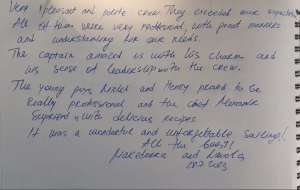 Very pleasant and polite crew. They exceeded our expectations
All of them were very professional, with great manners
and understanding for our needs.
The captain amazed us with his charm and
his sense of leadership with the crew.
The young guys and proved to be
really professional and the chef Alexander
surprised us with delicious recipes
It was a wonderful and unforgettable sailing!
All the best!
and